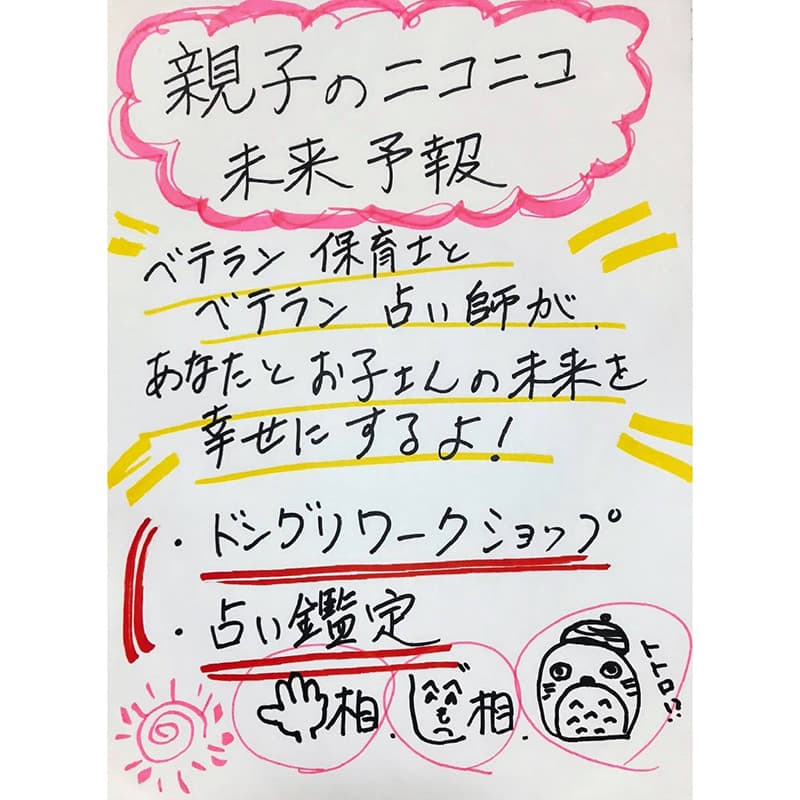 親子のニコニコ
未来予報
ベテラン 保育士と
ベテラン 占い師が
あなたとお子さんの未来を
幸せにするよ!
・ドングリワークショップ
・占い鑑定
相.
相.
トトロ